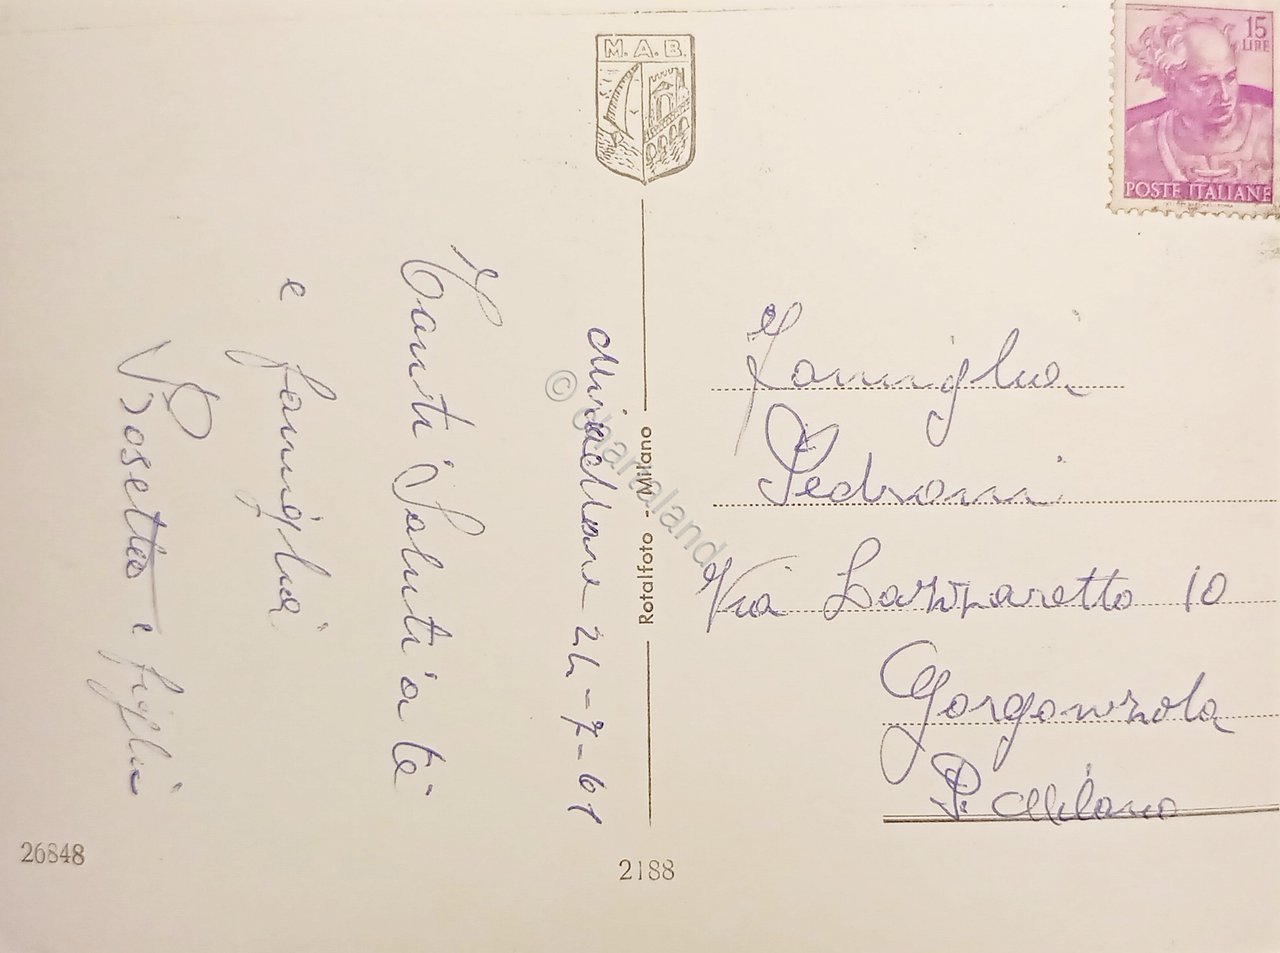 M. A. B.
15
LIRE
POSTE ITALIANE
Miradolo 24-7-61
Tanti Saluti a te
e famiglia
Rosetta e figli
Famiglia
Pedroni
Via Lazzaretto 10
Gorgonzola
P. Milano
Rotalfoto - Milano
© chartaland
26848
2188